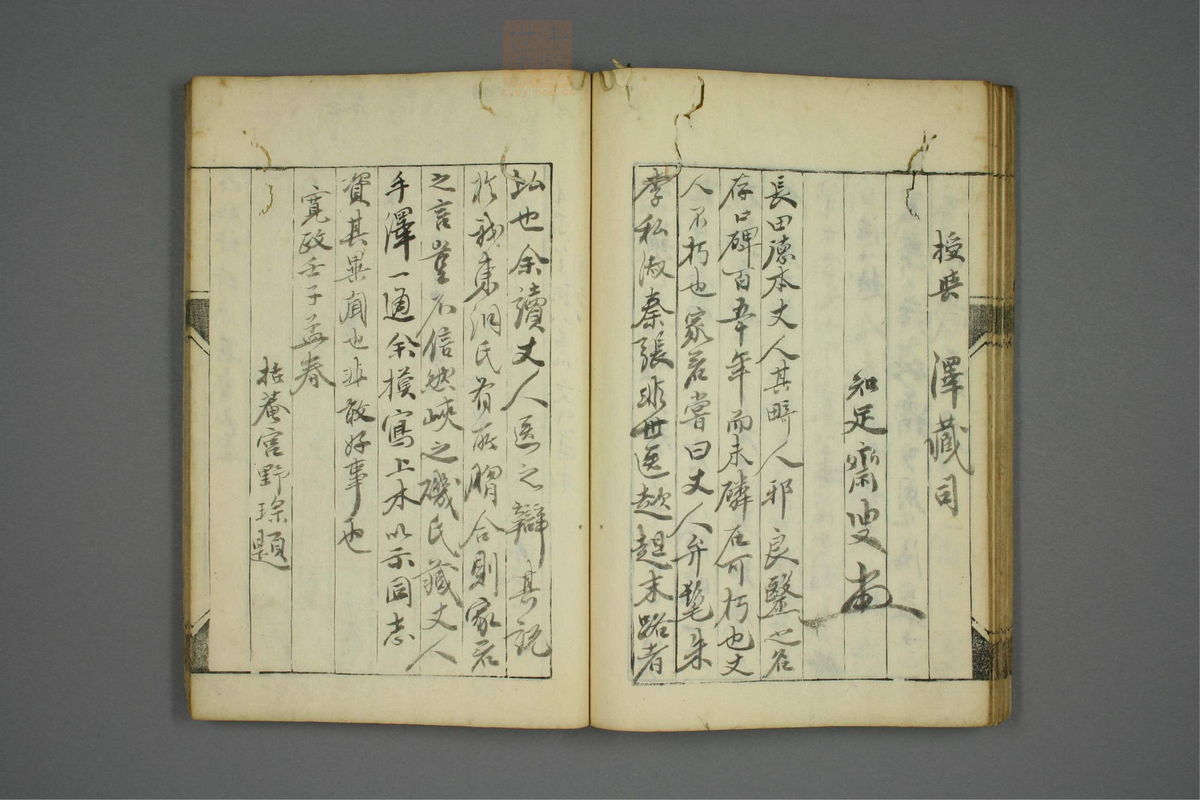 授與 澤藏司
知足齋叟
長田德本丈人其畸人邪良醫之名
存口碑百五十年而未磷在可朽也丈
人不朽也家君嘗曰丈人弁髦朱
李私淑秦張非世医趑趄末路者
比也余讀丈人医之辯其說
於我東洞氏有所脗合則家君
之言豈不信然峽之磯氏藏丈人
手澤一通余摸寫上木以示同志
資其異聞也非敢好事也
寬政壬子孟春
枯菴宮野琮題